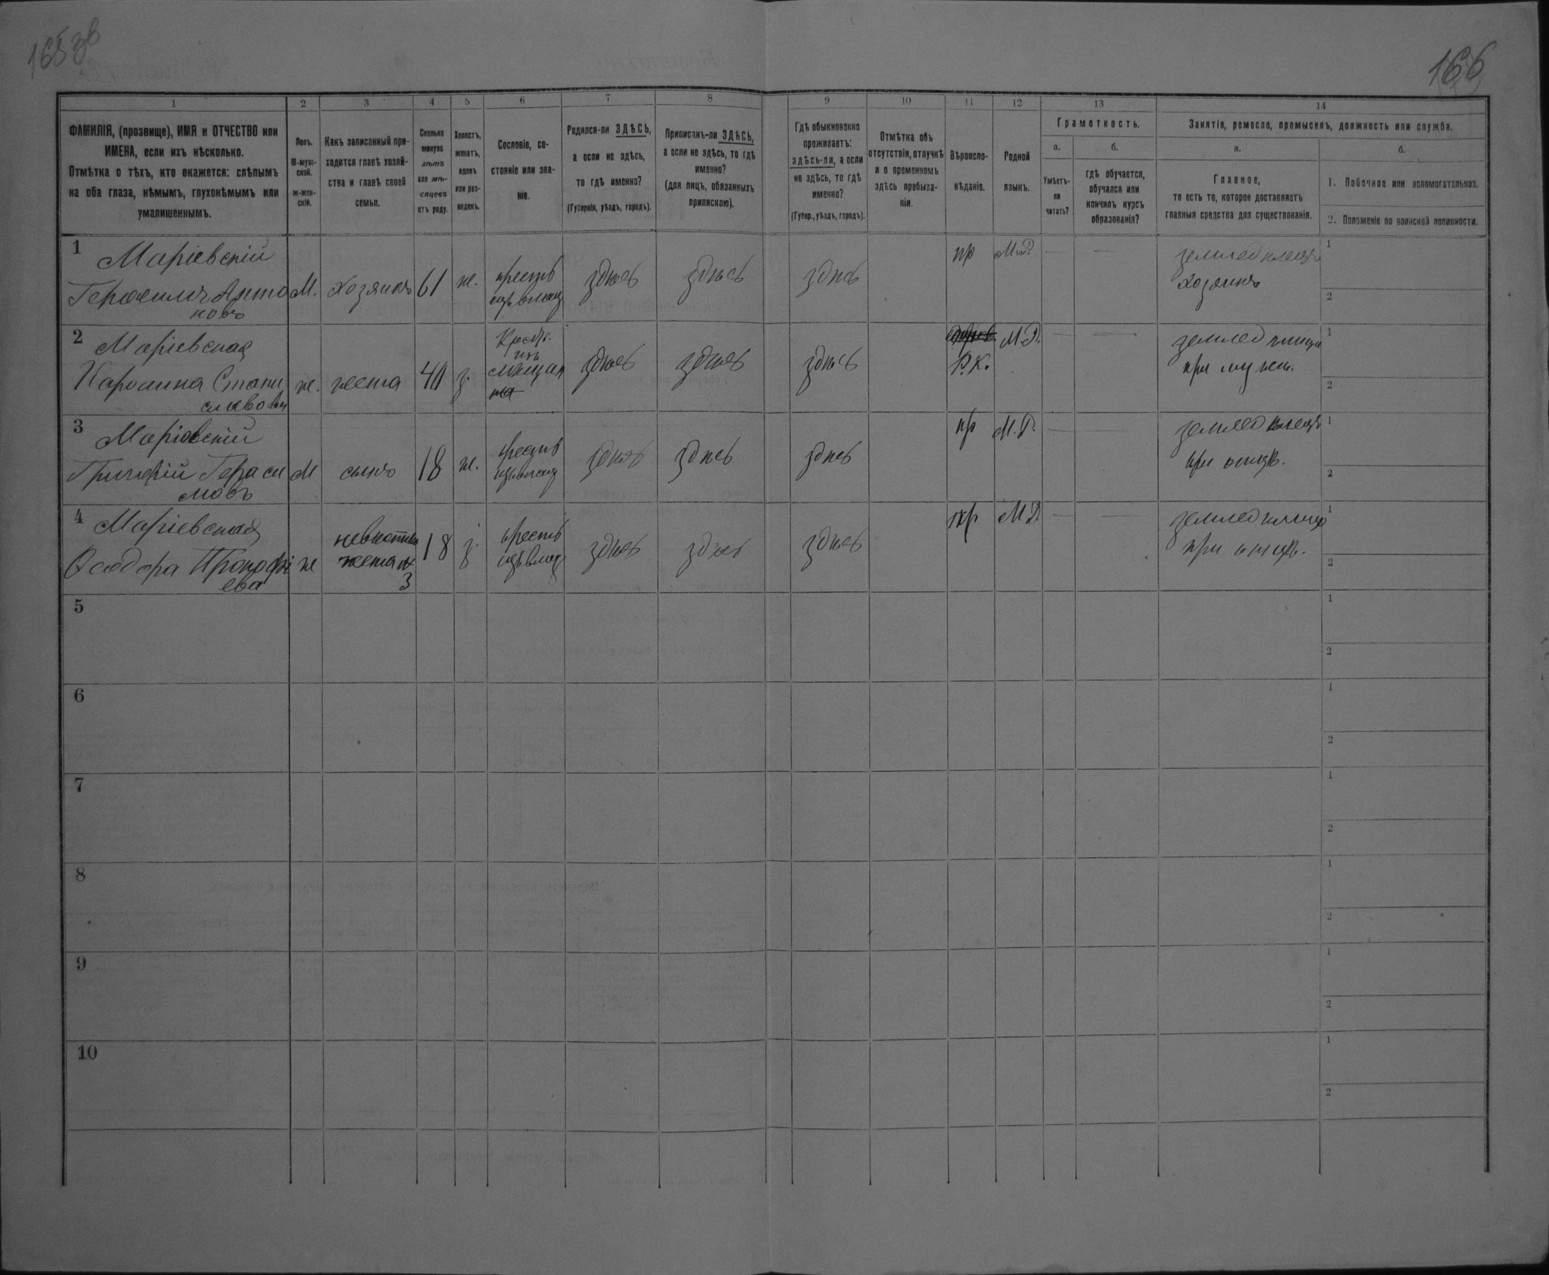 165 об
166
1
2
3
4
5
6
7
8
9
10
11
12
13
14
ФАМИЛІЯ, (прозвище), ИМЯ и ОТЧЕСТВО или
ИМЕНА, если ихъ нѣсколько.
Отмѣтка о тѣхъ, кто окажется: слѣпымъ
на оба глаза, нѣмымъ, глухонѣмымъ или
умалишеннымъ.
Полъ.
М-муж-
ской.
Ж-жен-
скій.
Какъ записанный при-
ходится главѣ хозяй-
ства и главѣ своей
семьи.
Сколько
минуло
лѣтъ
или мѣ-
сяцевъ
отъ роду.
Холостъ,
женатъ,
вдовъ
или раз-
веденъ.
Сословіе, со-
стояніе или зва-
ніе.
Родился-ли ЗДѢСЬ,
а если не здѣсь,
то гдѣ именно?
(Губернія, уѣздъ, городъ).
Приписанъ-ли ЗДѢСЬ,
а если не здѣсь, то гдѣ
именно?
(для лицъ, обязанныхъ
припискою).
Гдѣ обыкновенно
проживаетъ:
здѣсь-ли, а если
не здѣсь, то гдѣ
именно?
(Губер., уѣздъ, городъ).
Отмѣтка объ
отсутствіи, отлучкѣ
и о временномъ
здѣсь пребыва-
ніи.
Вѣроиспо-
вѣданіе.
Родной
языкъ.
Грамотность.
а.
Умѣетъ-
ли
читать?
б.
гдѣ обучается,
обучался или
кончилъ курсъ
образованія?
Занятія, ремесло, промыселъ, должность или служба.
а.
Главное,
то есть то, которое доставляетъ
главныя средства для существованія.
б.
1. Побочное или вспомогательное.
2. Положеніе по воинской повинности.
1
Маріевскій
Герасимъ Анто
новъ
М.
хозяинъ
61
ж.
крестъ
здѣсь
здѣсь
здѣсь
пр
М.Р.
хозяинъ
1
2
2
Маріевская
Каролина Стани
славова
ж.
жена
40
з.
Крест.
изъ
мѣщан
здѣсь
здѣсь
здѣсь
Р.К.
М.Р.
при муж.
1
2
3
Маріевскій
Григорій Гераси
мовъ
М
сынъ
18
ж.
здѣсь
здѣсь
здѣсь
пр
М.Р.
при отцѣ.
1
2
4
Маріевская
Ѳеодора Прокофі
ева
ж
невѣстка
жена
3
18
з.
здѣсь
здѣсь
здѣсь
пр
М.Р.
1
2
5
1
2
6
1
2
7
1
2
8
1
2
9
1
2
10
1
2